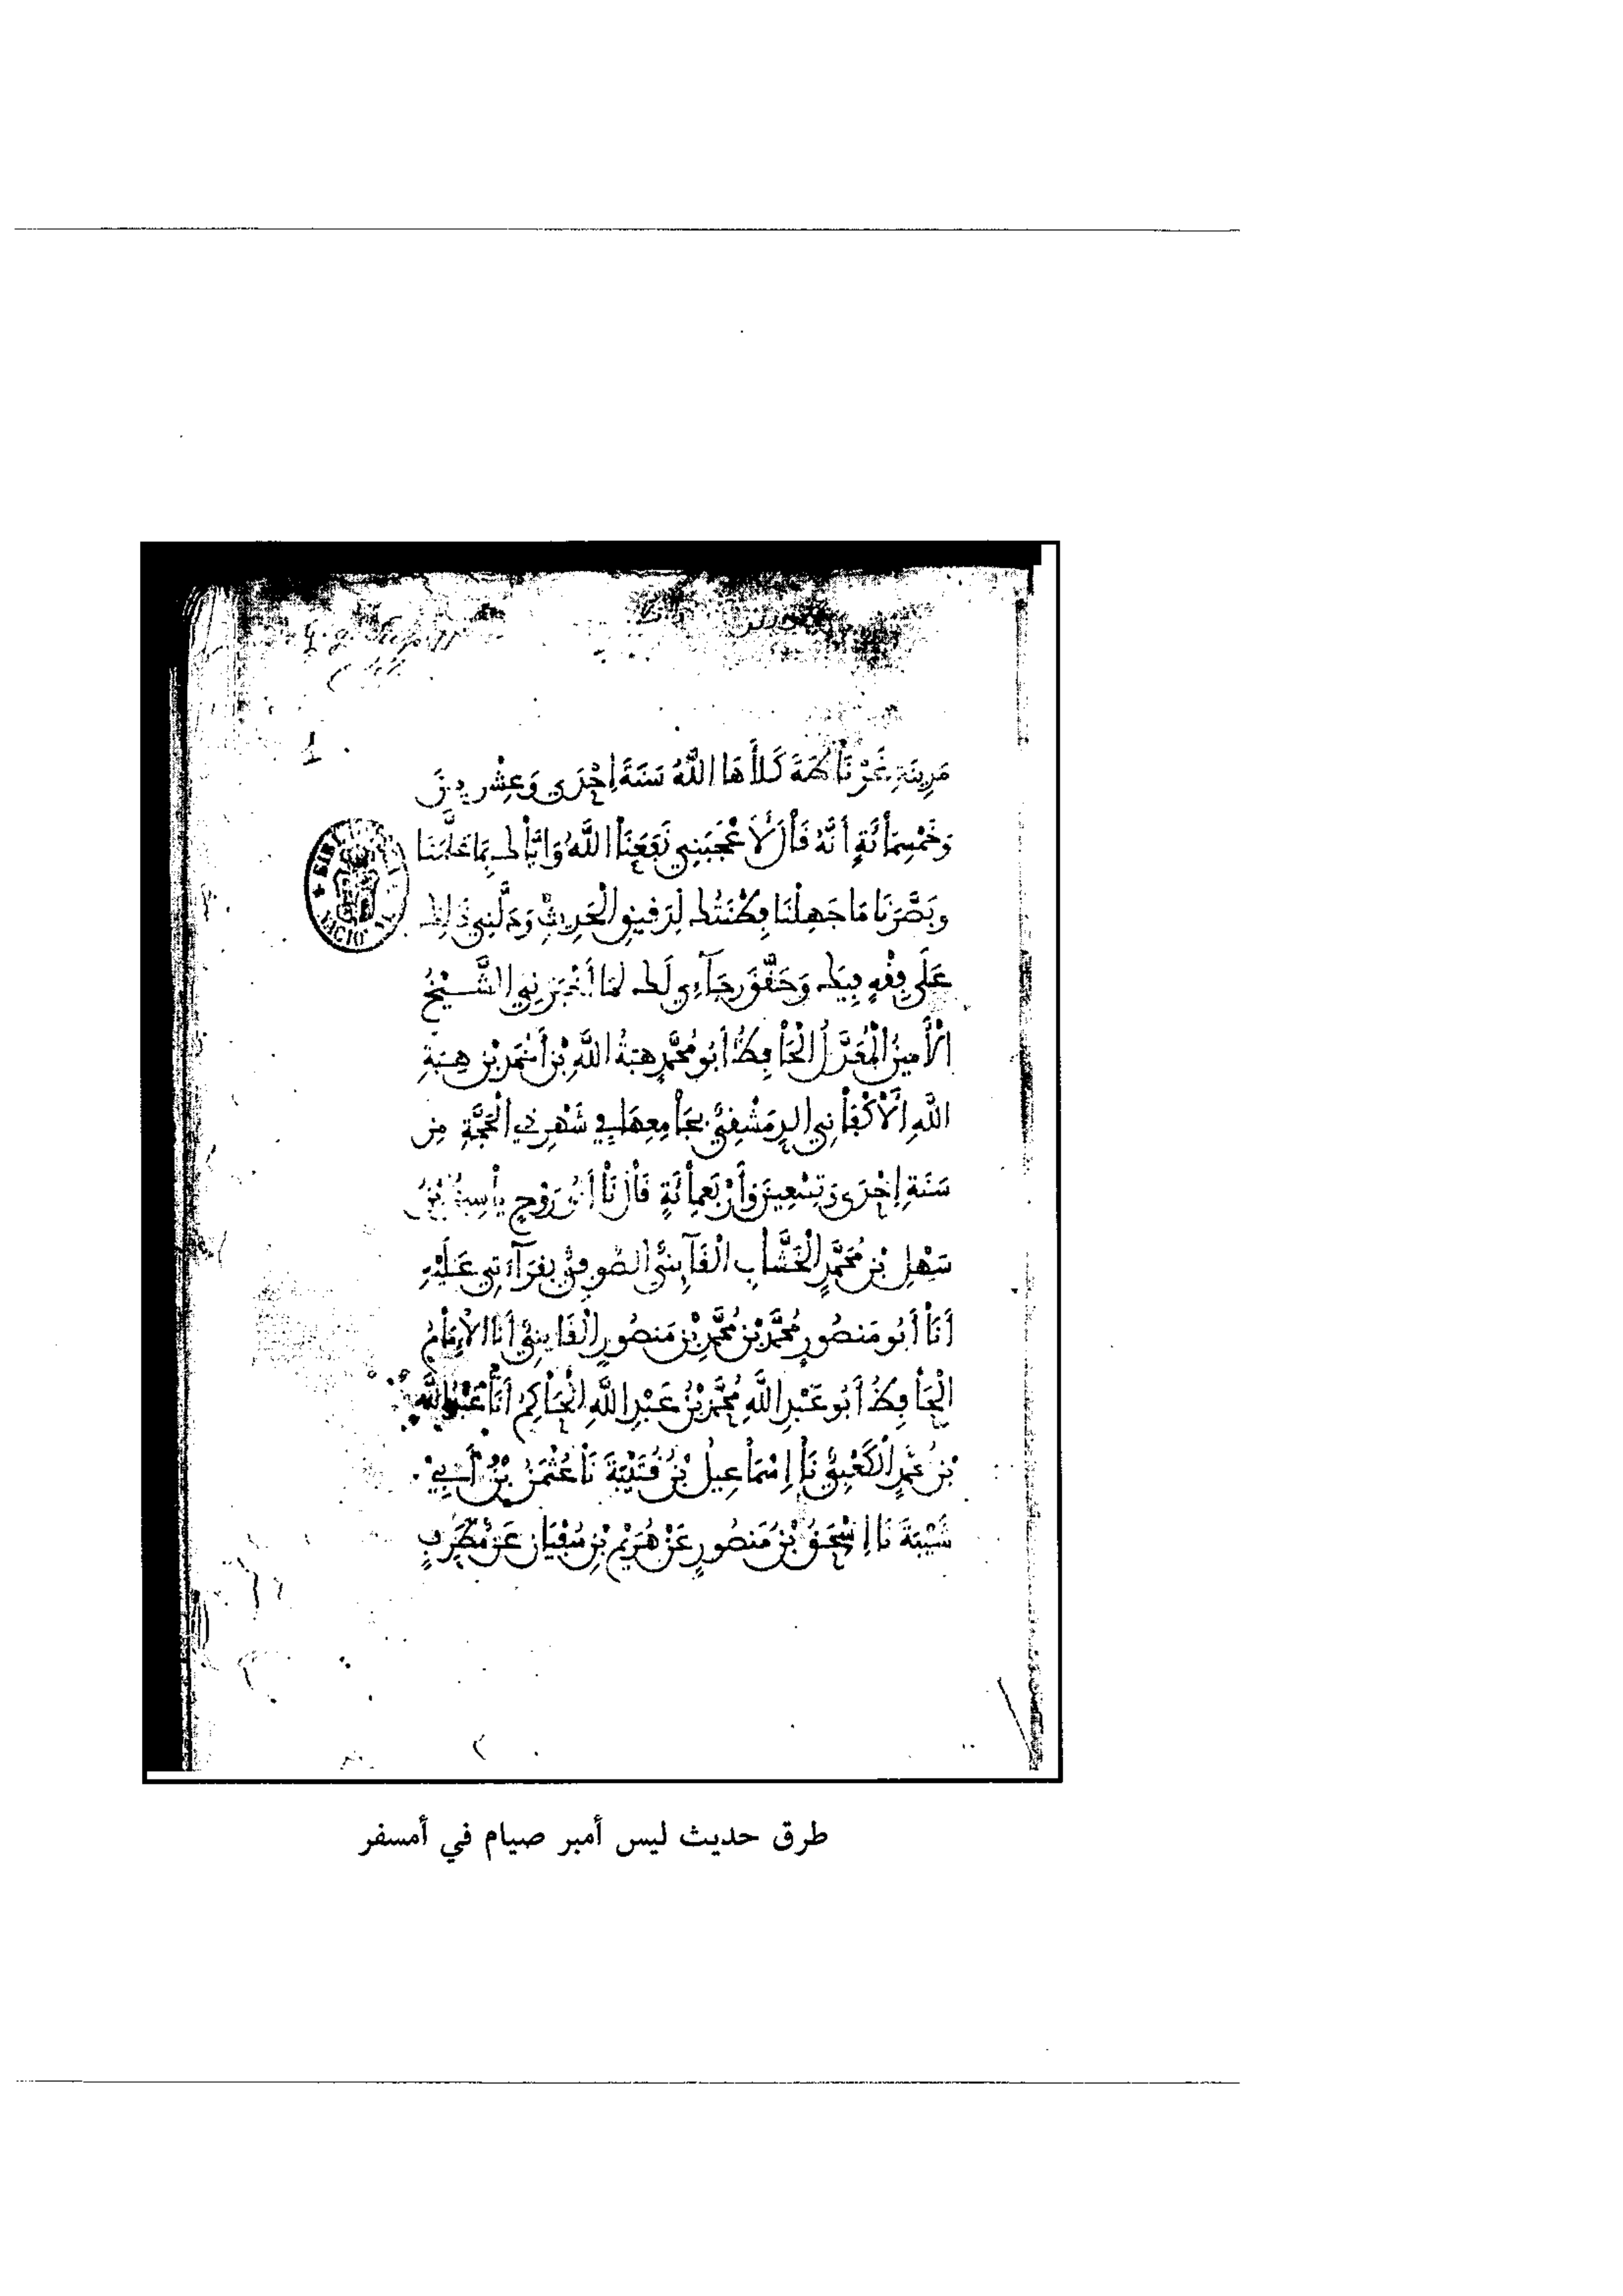 مَدِينَةِ غَرْنَاطَةَ كَلَأَهَا اللَّهُ سَنَةَ إِحْدَى وَعِشْرِينَ
وَخَمْسِمِائَةٍ أَنَّهُ قَالَ لَا عْجَبَنِي نَفَعَنَا اللَّهُ وَإِيَّاكَ بِمَا عَلَّمَنَا
وَبَصَّرَنَا مَا جَهِلْنَا فِطْنَتُكَ لِدَقِيقِ الْحَدِيثِ وَدَلَّنِي ذَلِكَ
عَلَى فِقْهٍ فِيكَ وَحَقَّقَ رَجَآءِي لَكَ لَمَّا أَخْبَرَنِي الشَّيْخُ
الْأَمِينُ الْمُعَدَّلُ الْحَافِظُ أَبُو مُحَمَّدٍ هِبَةُ اللَّهِ بْنُ أَحْمَدَ بْنِ هِبَةِ
اللَّهِ الْأَكْفَانِي الدِّمَشْقِيُّ بِجَامِعِهَا فِي شَهْرِ ذِي الْحَجَّةِ مِن
سَنَةِ إِحْدَى وَتِسْعِينَ وَأَرْبَعِمِائَةٍ قَالَ نَا أَبُو رَوْحٍ يَاسِينُ بْنُ
سَهْلِ بْنِ مُحَمَّدٍ الْخَشَّابِ الْقَآيِنِيُّ الصُّوفِيُّ بِقِرَآءَتِي عَلَيْهِ
أَنَا أَبُو مَنصُورٍ مُحَمَّدُ بْنُ مُحَمَّدِ بْنِ مَنصُورٍ الْقَايِنِيُّ أَنَا الْإِمَامُ
الْحَافِظُ أَبُو عَبْدِ اللَّهِ مُحَمَّدُ بْنُ عَبْدِ اللَّهِ الْحَاكِمُ أَنَا عَبْدُ اللَّهِ
بْنُ مُحَمَّدٍ الْكَعْبِيُّ نَا إِسْمَاعِيلُ بْنُ قُتَيْبَةَ نَا عُثْمَنُ بْنُ أَبِي
شَيْبَةَ نَا إِسْحَقُ بْنُ مَنصُورٍ عَنْ هُرَيْمِ بْنِ سُفْيَانَ عَنْ مُطَرِّفٍ
طرق حديث ليس أمبر صيام في أمسفر